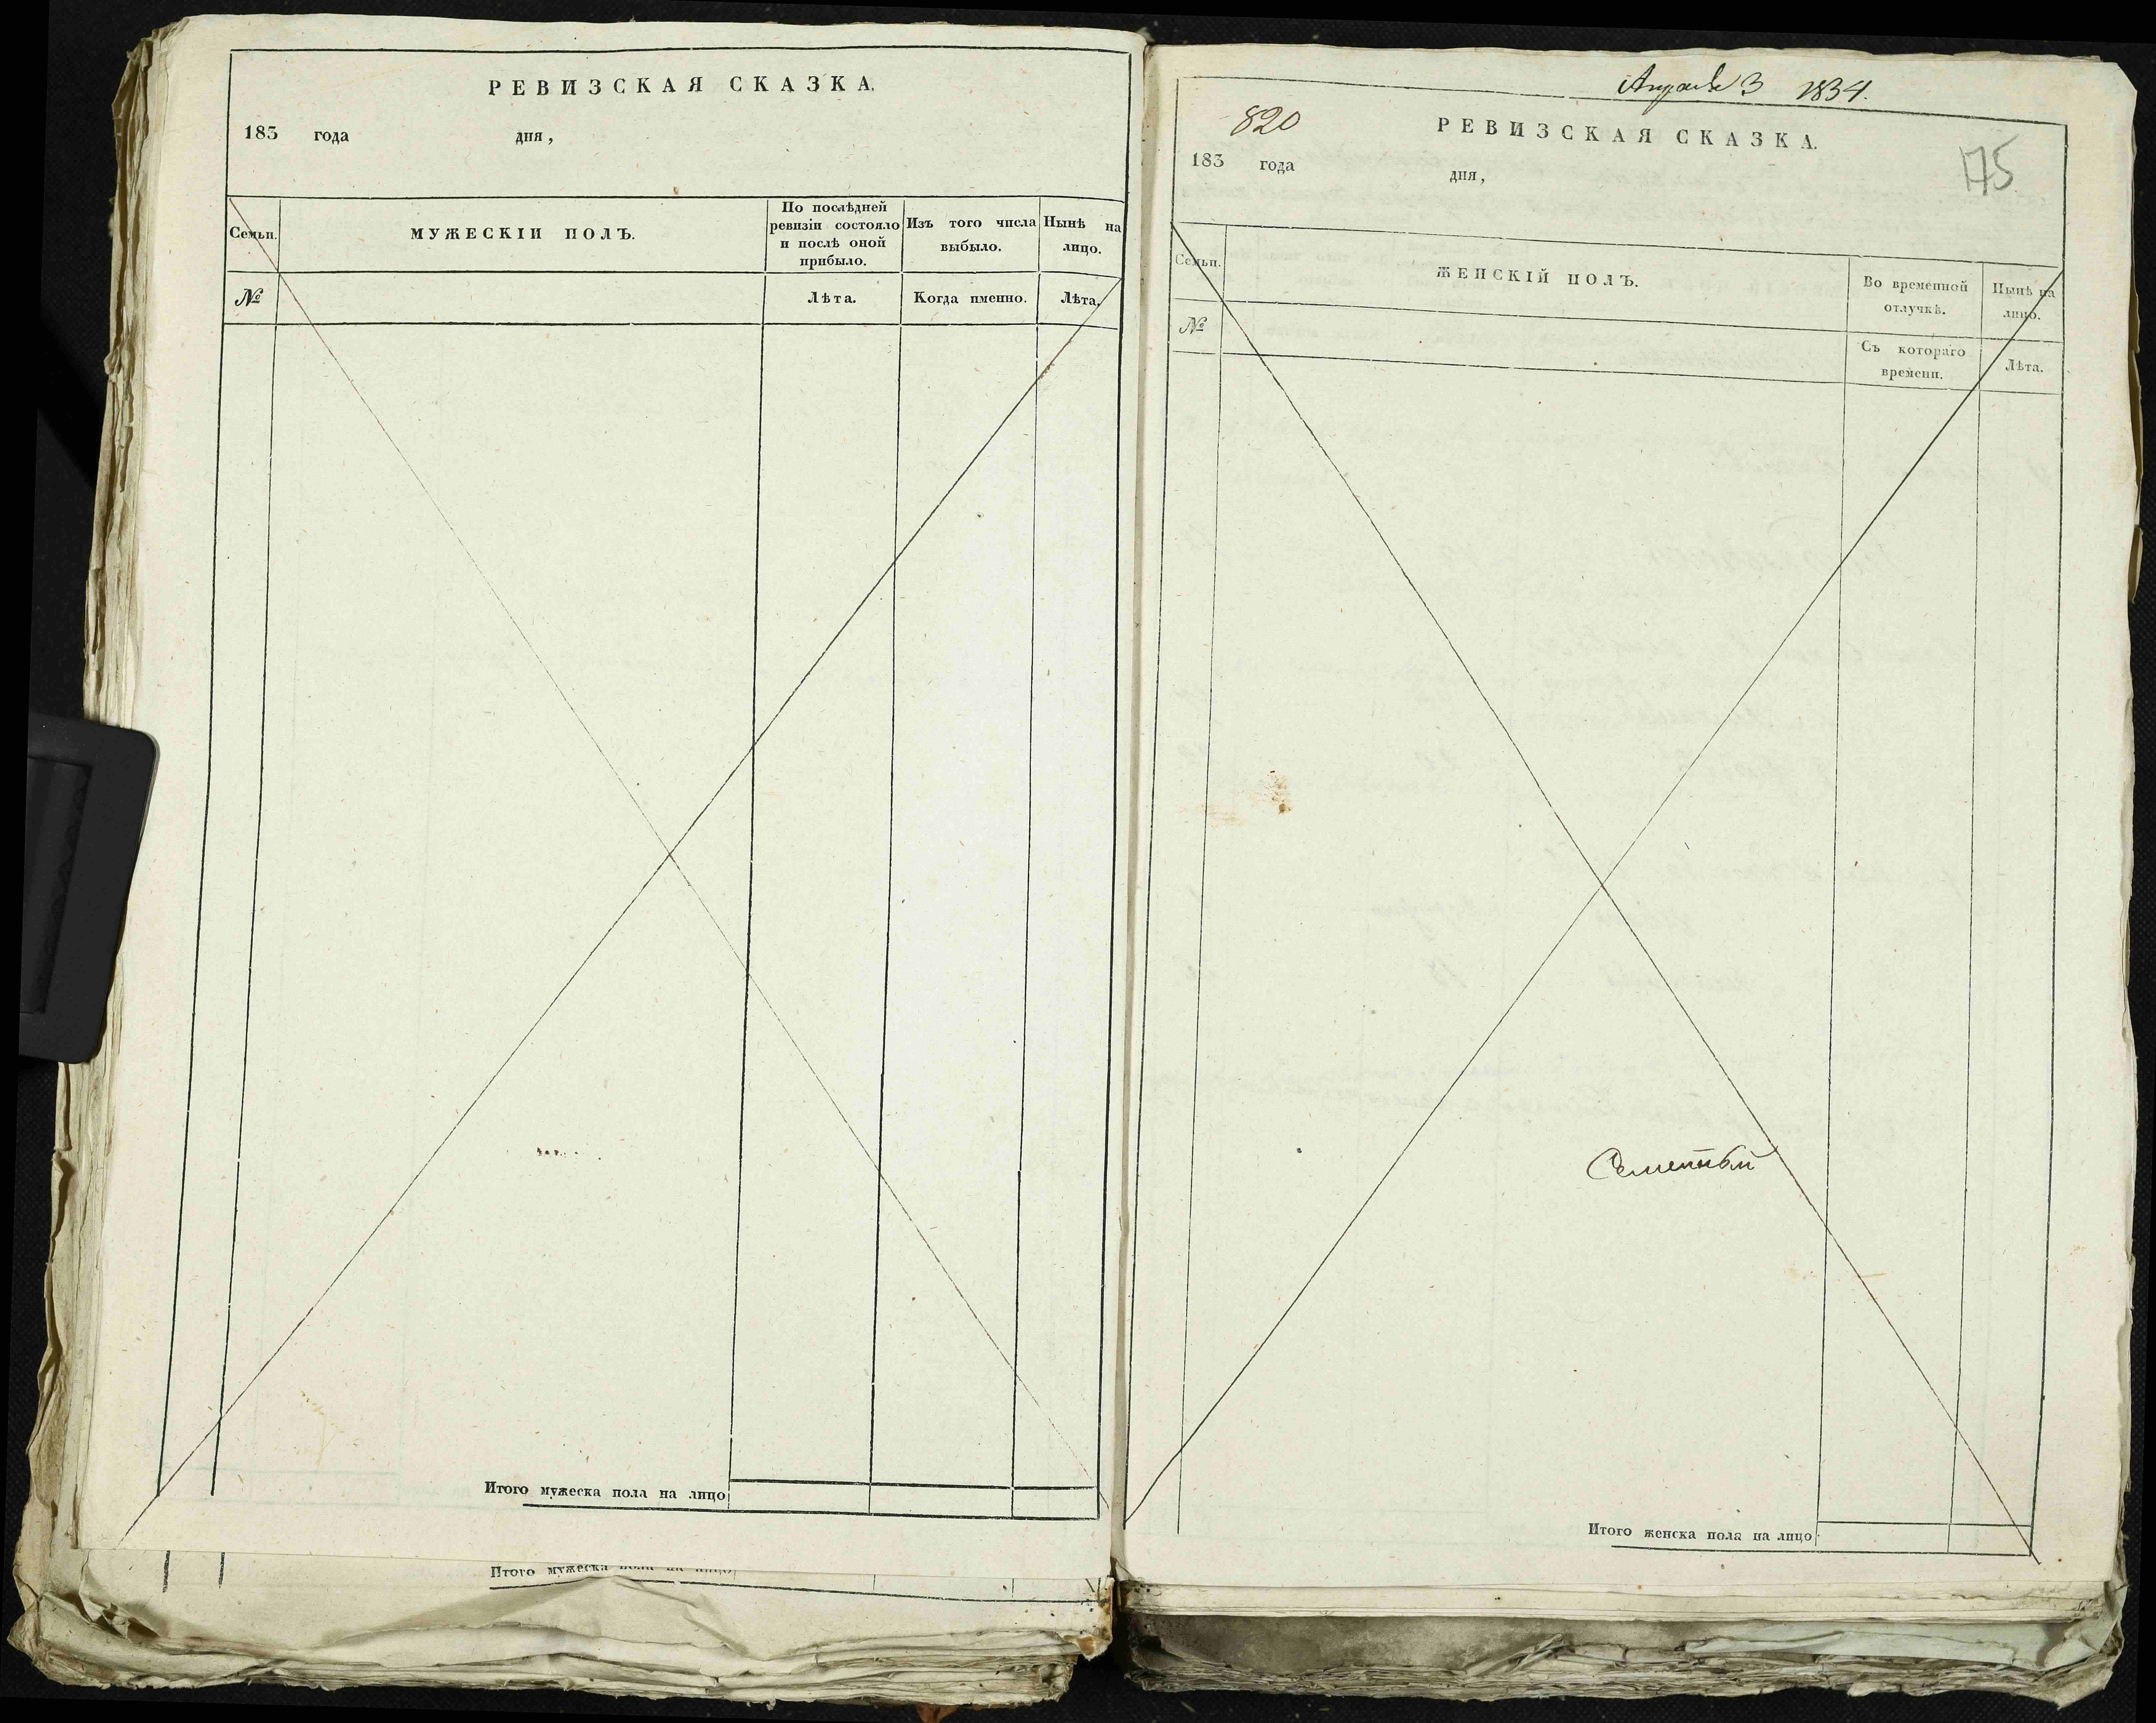 РЕВИЗСКАЯ СКАЗКА.
183 года дня,
Семьи.
МУЖЕСКІЙ ПОЛЪ.
По послѣдней ревизіи состояло и послѣ оной прибыло.
Изъ того числа выбыло.
Нынѣ на лицо.
№
Лѣта.
Когда именно.
Лѣта.
Итого мужеска пола на лицо
Итого мужеска пола на лицо
Апреля 3 1834.
820
РЕВИЗСКАЯ СКАЗКА.
175
183 года дня,
Семьи.
ЖЕНСКІЙ ПОЛЪ.
Во временной отлучкѣ.
Нынѣ на лицо.
№
Съ котораго времени.
Лѣта.
Итого женска пола на лицо